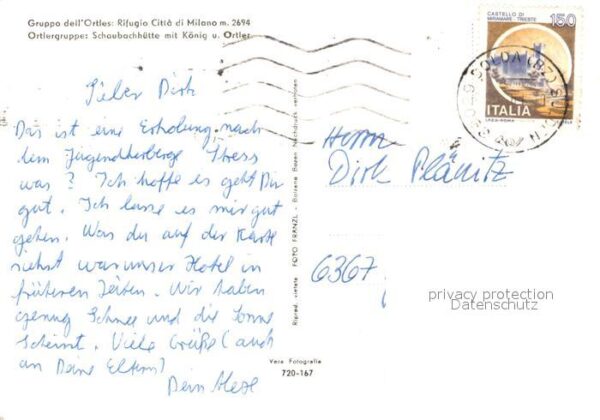 Gruppo dell'Ortles: Rifugio Città di Milano m. 2694
Ortlergruppe: Schaubachhütte mit König u. Ortler
Lieber Dirk
Das ist eine Erholung nach
dem Jugendherbergs Stress
was ? Ich hoffe es geht Dir
gut. Ich lasse es mir gut
gehen. Was du auf der Karte
siehst war unser Hotel in
früheren Zeiten. Wir haben
genug Schnee und die Sonne
scheint. Viele Grüße (auch
an Deine Eltern)
Dein
Riprod. vietata FOTO FRANZL - Bolzano Bozen Nachdruck verboten
Vera Fotografia
720-167
CASTELLO DI
MIRAMARE - TRIESTE
150
ITALIA
SOLDA (BZ)
39029
Herrn
Dirk Plänitz
6367
privacy protection
Datenschutz